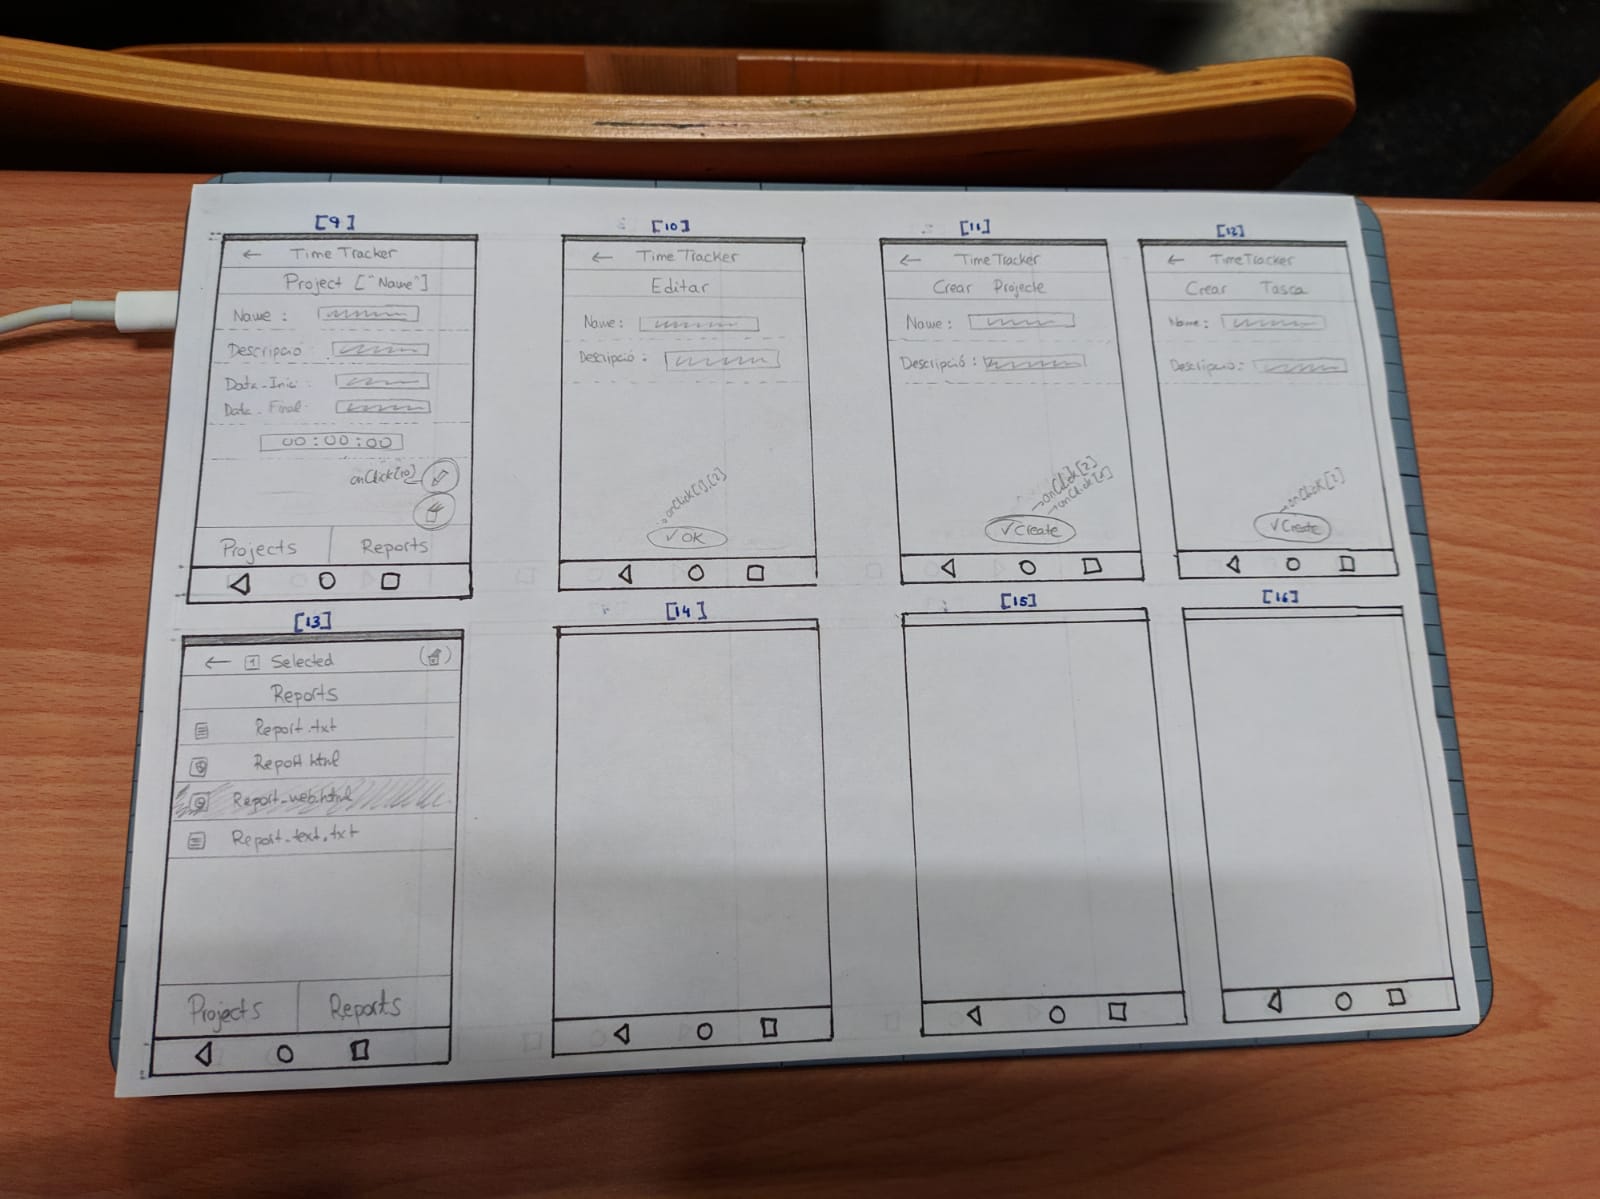 [9]
← Time Tracker
Project ["Name"]
Name :
Descripció
Data_Inici :
Data_Final :
00:00:00
onClick[10]
Projects
Reports
[10]
← Time Tracker
Editar
Name :
Descripció :
onClick[1],[2]
✓ OK
[11]
← Time Tracker
Crear Projecte
Name :
Descripció :
→onClick[2]
→onClick[1]
✓Create
[12]
← TimeTracker
Crear Tasca
Name :
Descripció :
→onClick[2]
✓Create
[13]
← 1 Selected
Reports
Report.txt
Report.html
Report_web.html
Report_text.txt
Projects
Reports
[14]
[15]
[16]